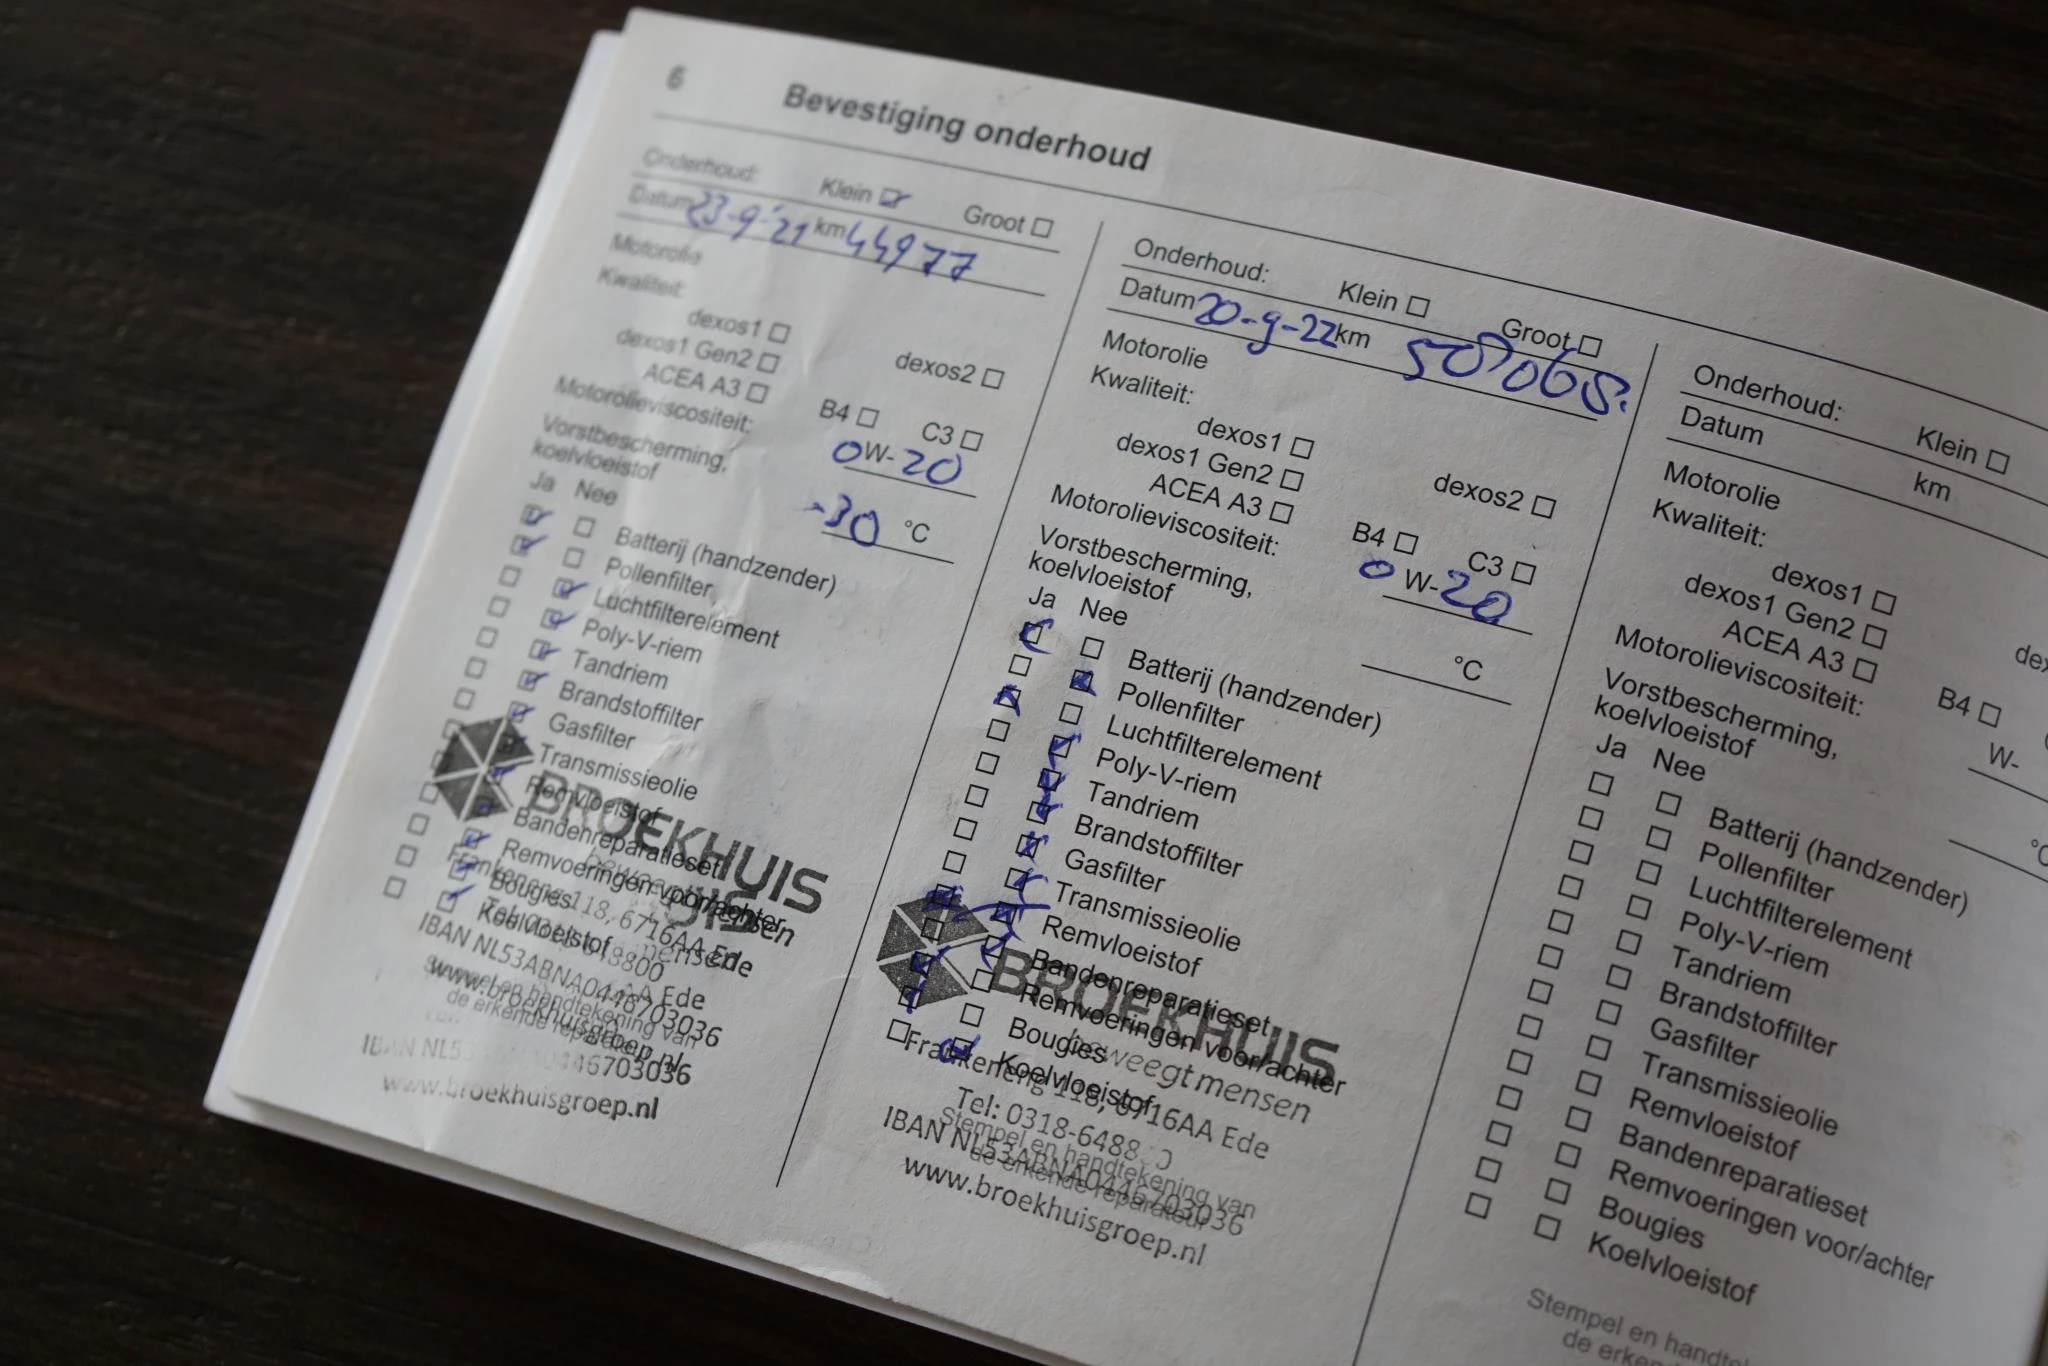 6 Bevestiging onderhoud
Onderhoud: Klein Groot
Datum 23-9-'21 km 44977
Motorolie
Kwaliteit:
dexos1
dexos1 Gen2 dexos2
ACEA A3 B4 C3
Motorolieviscositeit: 0 W- 20
Vorstbescherming,
koelvloeistof -30 °C
Ja Nee
Batterij (handzender)
Pollenfilter
Luchtfilterelement
Poly-V-riem
Tandriem
Brandstoffilter
Gasfilter
Transmissieolie
Remvloeistof
Bandenreparatieset
Remvoeringen voor/achter
Bougies
Koelvloeistof
BROEKHUIS
Frankeneng 118, 6716AA Ede
IBAN NL53ABNA0446703036
www.broekhuisgroep.nl
Stempel en handtekening van
de erkende reparateur
www.broekhuisgroep.nl
Onderhoud: Klein Groot
Datum 20-9-22 km 58068
Motorolie
Kwaliteit:
dexos1
dexos1 Gen2 dexos2
ACEA A3 B4 C3
Motorolieviscositeit: 0 W- 20
Vorstbescherming,
koelvloeistof °C
Ja Nee
Batterij (handzender)
Pollenfilter
Luchtfilterelement
Poly-V-riem
Tandriem
Brandstoffilter
Gasfilter
Transmissieolie
Remvloeistof
Bandenreparatieset
Remvoeringen voor/achter
Bougies
Koelvloeistof
BROEKHUIS
beweegt mensen
Frankeneng 118, 6716AA Ede
Tel: 0318-6488
IBAN NL53ABNA0446703036
www.broekhuisgroep.nl
Stempel en handtekening van
de erkende reparateur
Onderhoud: Klein
Datum km
Motorolie
Kwaliteit:
dexos1
dexos1 Gen2
ACEA A3 B4
Motorolieviscositeit: W-
Vorstbescherming,
koelvloeistof
Ja Nee
Batterij (handzender)
Pollenfilter
Luchtfilterelement
Poly-V-riem
Tandriem
Brandstoffilter
Gasfilter
Transmissieolie
Remvloeistof
Bandenreparatieset
Remvoeringen voor/achter
Bougies
Koelvloeistof
Stempel en
de erkende